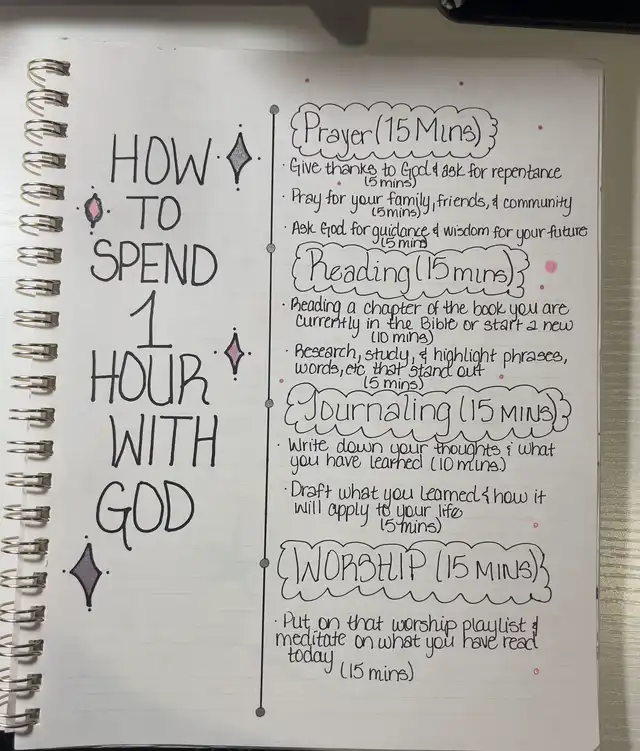 HOW
TO
SPEND
1
HOUR
WITH
GOD
Prayer (15 Mins)
· Give thanks to God & ask for repentance
(5 mins)
· Pray for your family, friends, & community
(5 mins)
· Ask God for guidance & wisdom for your future
(5 min)
Reading (15 mins)
· Reading a chapter of the book you are
currently in the Bible or start a new
(10 mins)
· Research, study, & highlight phrases,
words, etc that stand out
(5 mins)
Journaling (15 MINS)
· Write down your thoughts & what
you have learned (10 mins)
· Draft what you learned & how it
will apply to your life
(5 mins)
WORSHIP (15 MINS)
· Put on that worship playlist &
meditate on what you have read
today
(15 mins)